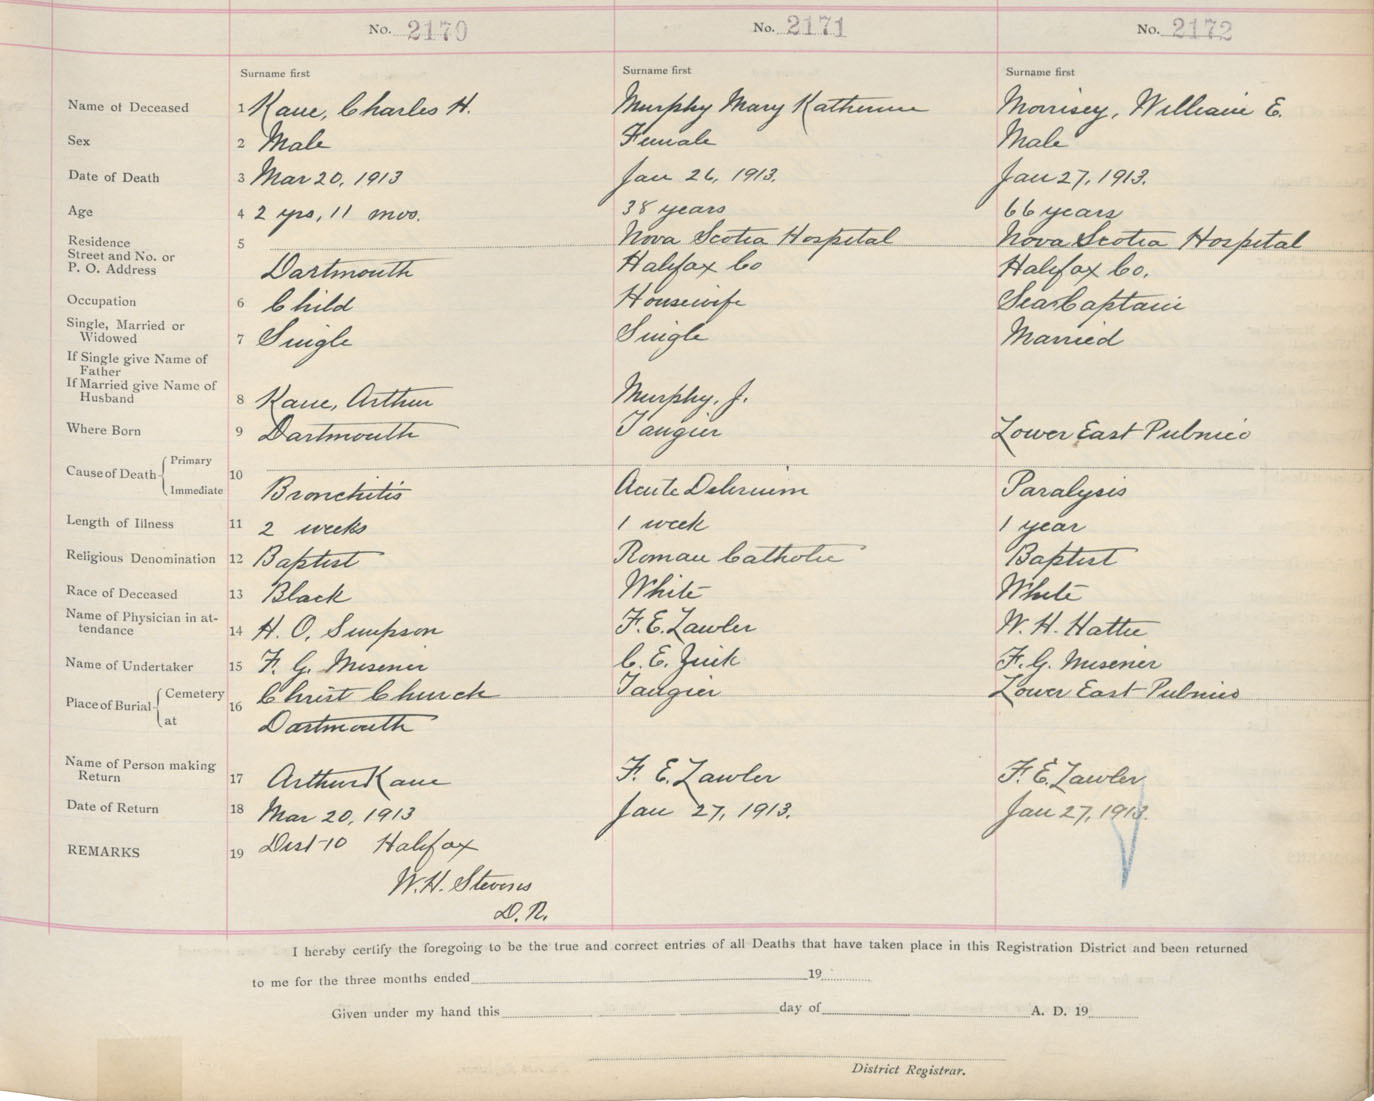 No. 2170 No. 2171 No. 2172
Surname first Surname first Surname first
Name of Deceased 1 Kane, Charles H. Murphy Mary Katherine Morrisey, William E.
Sex 2 Male Female Male
Date of Death 3 Mar 20, 1913 Jan 26, 1913. Jan 27, 1913.
Age 4 2 yrs, 11 mos. 38 years 66 years
Residence 5 Nova Scotia Hospital Nova Scotia Hospital
Street and No. or
P. O. Address Dartmouth Halifax Co Halifax Co.
Occupation 6 Child Housewife Sea Captain
Single, Married or
Widowed 7 Single Single Married
If Single give Name of
Father
If Married give Name of
Husband 8 Kane, Arthur Murphy, J.
Where Born 9 Dartmouth Tangier Lower East Pubnico
Cause of Death Primary 10
Immediate Bronchitis Acute Delirium Paralysis
Length of Illness 11 2 weeks 1 week 1 year
Religious Denomination 12 Baptist Roman Catholic Baptist
Race of Deceased 13 Black White White
Name of Physician in at-
tendance 14 H. O. Simpson F. E. Lawlor W. H. Hattie
Name of Undertaker 15 F. G. Misener C. E. F. G. Misener
Place of Burial Cemetery 16 Christ Church Tangier Lower East Pubnico
at Dartmouth
Name of Person making
Return 17 Arthur Kane F. E. Lawlor F. E. Lawlor
Date of Return 18 Mar 20, 1913 Jan 27, 1913. Jan 27, 1913.
REMARKS 19 Dist 10 Halifax
W. H. Stevens
D. R.
I hereby certify the foregoing to be the true and correct entries of all Deaths that have taken place in this Registration District and been returned
to me for the three months ended 19
Given under my hand this day of A. D. 19
District Registrar.